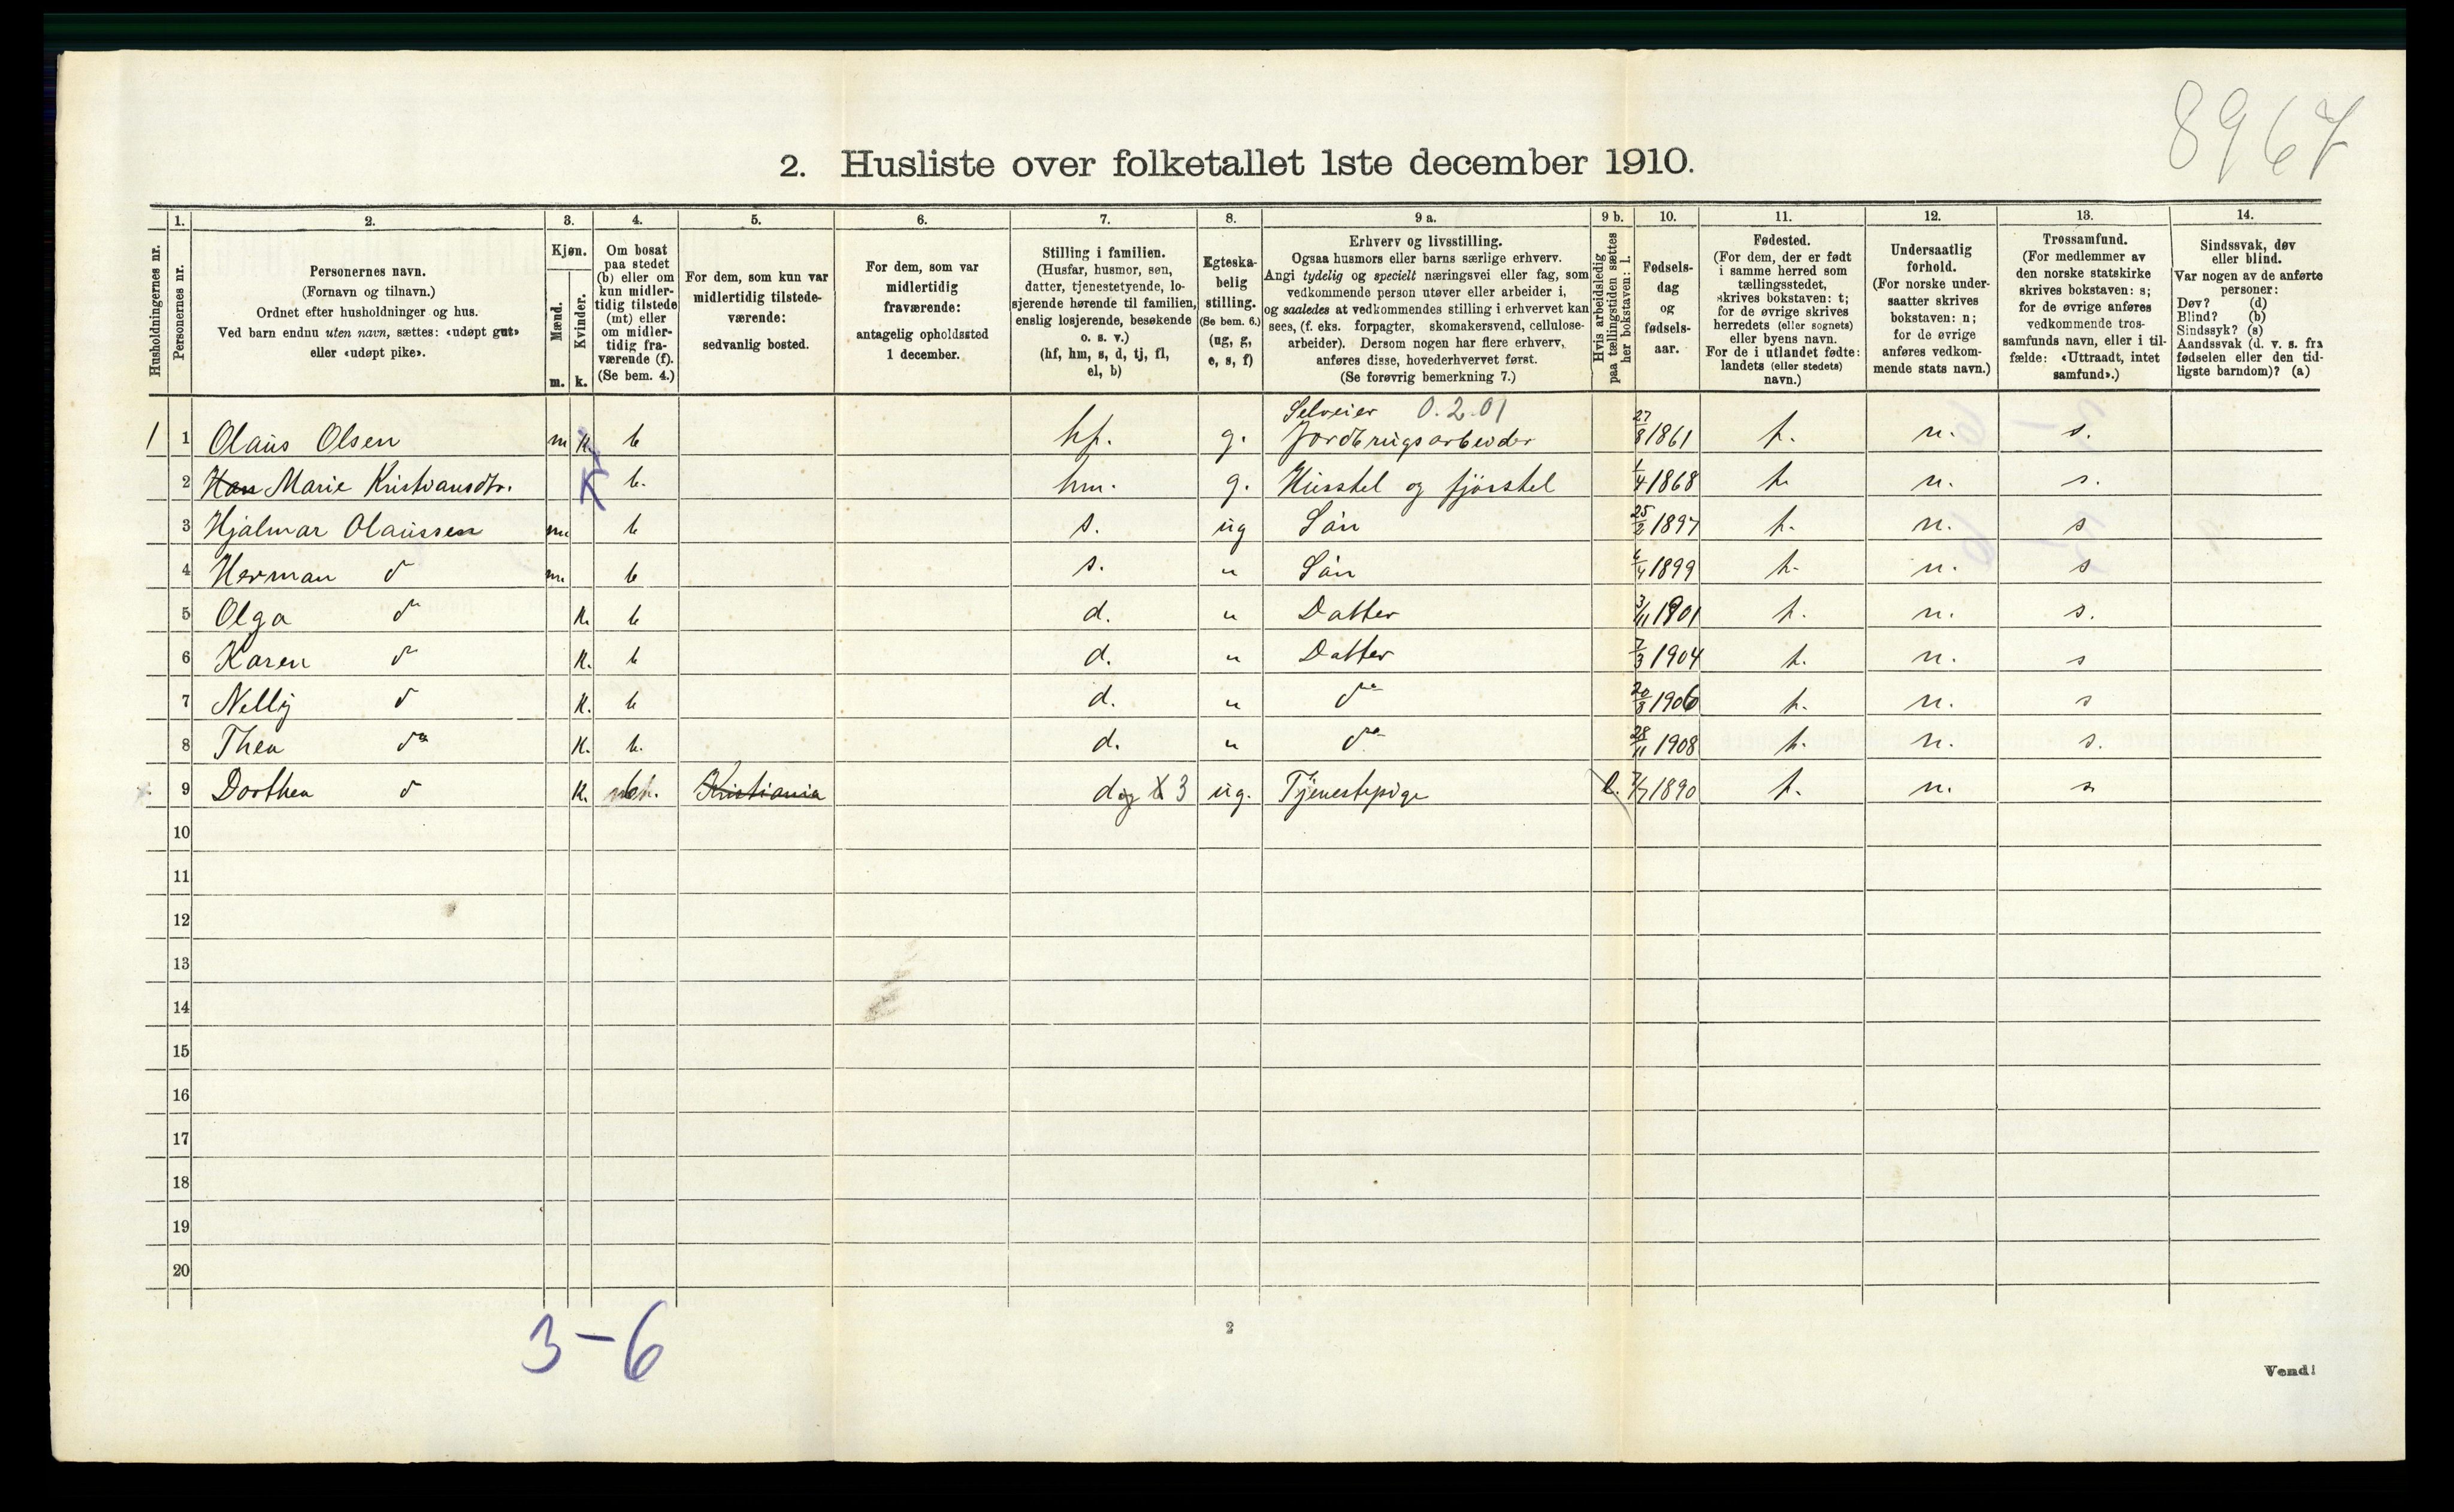 8967
2. Husliste over folketallet 1ste december 1910.
Husholdningernes nr.
1. Personernes nr.
2. Personernes navn. (Fornavn og tilnavn.) Ordnet efter husholdninger og hus. Ved barn endnu uten navn, sættes: «udøpt gut» eller «udøpt pike».
3. Kjøn. Mænd. m. Kvinder. k.
4. Om bosat paa stedet (b) eller om kun midlertidig tilstede (mt) eller om midlertidig fraværende (f). (Se bem. 4.)
5. For dem, som kun var midlertidig tilstedeværende: sedvanlig bosted.
6. For dem, som var midlertidig fraværende: antagelig opholdssted 1 december.
7. Stilling i familien. (Husfar, husmor, søn, datter, tjenestetyende, losjerende hørende til familien, enslig losjerende, besøkende o. s. v.) (hf, hm, s, d, tj, fl, el, b)
8. Egteskabelig stilling. (Se bem. 6.) (ug, g, e, s, f)
9 a. Erhverv og livsstilling. Ogsaa husmors eller barns særlige erhverv. Angi tydelig og specielt næringsvei eller fag, som vedkommende person utøver eller arbeider i, og saaledes at vedkommendes stilling i erhvervet kan sees, (f. eks. forpagter, skomakersvend, cellulosearbeider). Dersom nogen har flere erhverv, anføres disse, hovederhvervet først. (Se forøvrig bemerkning 7.)
9 b. Hvis arbeidsledig paa tællingstiden sættes her bokstaven: l.
10. Fødselsdag og fødselsaar.
11. Fødested. (For dem, der er født i samme herred som tællingsstedet, skrives bokstaven: t; for de øvrige skrives herredets (eller sognets) eller byens navn. For de i utlandet fødte: landets (eller stedets) navn.)
12. Undersaatlig forhold. (For norske undersaatter skrives bokstaven: n; for de øvrige anføres vedkommende stats navn.)
13. Trossamfund. (For medlemmer av den norske statskirke skrives bokstaven: s; for de øvrige anføres vedkommende trossamfunds navn, eller i tilfælde: «Uttraadt, intet samfund».)
14. Sindssvak, døv eller blind. Var nogen av de anførte personer: Døv? (d) Blind? (b) Sindssyk? (s) Aandssvak (d. v. s. fra fødselen eller den tidligste barndom)? (a)
Selveier 0.2.01
1 1 Olaus Olsen m k. b hf. g. Jordbrugsarbeider 27/8 1861 t. n. s.
2 Han Marie Kristiansdtr. K b. hm. g. Husstel og fjøsstel 1/4 1868 t. n. s.
3 Hjalmar Olaussen m b s. ug Sön 25/2 1897 t. n. s
4 Herman do m b s. " Sön 6/4 1899 t. n. s
5 Olga do k. b d. " Datter 3/11 1901 t. n. s.
6 Karen do k. b d. " Datter 7/3 1904 t. n. s
7 Nelly do k. b d. " do 20/8 1906 t. n. s
8 Thea do k. b. d. " do 28/11 1908 t. n. s.
9 Dorthea do k. Kristiania d X 3 ug. Tjenestepige l. 7/7 1890 t. n. s
10
11
12
13
14
15
16
17
18
19
20
3-6
2
Vend!